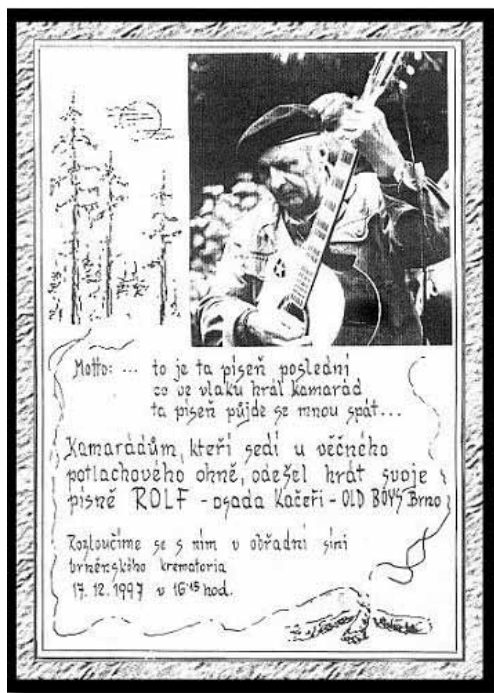 Motto: ... to je ta píseň poslední
co ve vlaku hrál kamarád
ta píseň půjde se mnou spát...
Kamarádům, kteří sedí u věčného
potlachového ohně, odešel hrát svoje
písně ROLF - osada Kačeři - OLD BOYS Brno
Rozloučíme se s ním v obřadní síni
brněnského krematoria
17. 12. 1997 v 16¹⁵ hod.